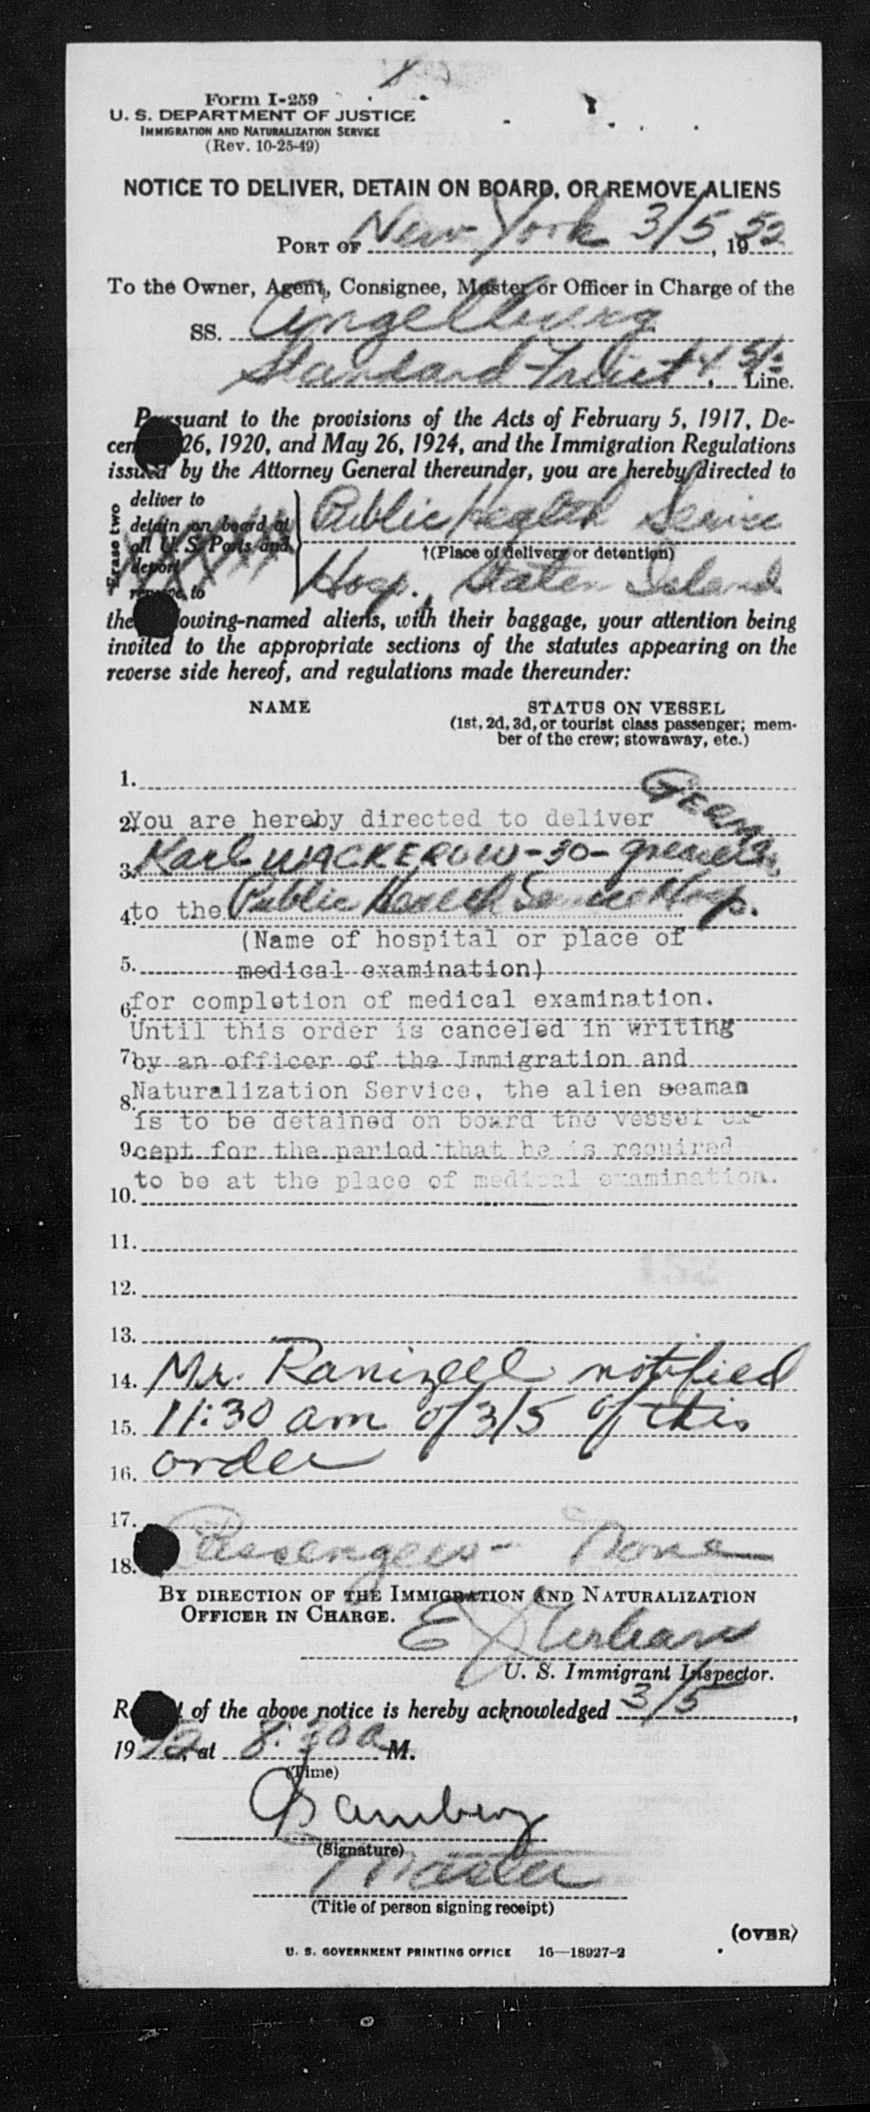 Form I-259
U. S. DEPARTMENT OF JUSTICE
IMMIGRATION AND NATURALIZATION SERVICE
(Rev. 10-25-49)
NOTICE TO DELIVER, DETAIN ON BOARD, OR REMOVE ALIENS
PORT OF New York 3/5, 1952
To the Owner, Agent, Consignee, Master or Officer in Charge of the
SS. Angelburg
Standard Fruit & S/S Line.
Pursuant to the provisions of the Acts of February 5, 1917, De-
cem 26, 1920, and May 26, 1924, and the Immigration Regulations
issued by the Attorney General thereunder, you are hereby directed to
Erase two
deliver to
detain on board at
all U. S. Ports and
deport
remove to
Public Health Service
†(Place of delivery or detention)
Hosp., Staten Island
the owing-named aliens, with their baggage, your attention being
invited to the appropriate sections of the statutes appearing on the
reverse side hereof, and regulations made thereunder:
NAME STATUS ON VESSEL
(1st, 2d, 3d, or tourist class passenger; mem-
ber of the crew; stowaway, etc.)
1.
German
2. You are hereby directed to deliver
3. Karl WACKEROW - 30 -
4. to the Public Health Service Hosp.
(Name of hospital or place of
5. medical examination)
6. for completion of medical examination.
Until this order is canceled in writing
7. by an officer of the Immigration and
8. Naturalization Service, the alien seaman
is to be detained on board the vessel ex-
9. cept for the period that he is required
to be at the place of medical examination.
10.
11.
12.
13.
14. Mr. notified
15. 11:30 am of 3/5 of this
16. order
17.
18. Passengers - None
BY DIRECTION OF THE IMMIGRATION AND NATURALIZATION
OFFICER IN CHARGE.
U. S. Immigrant Inspector.
R t of the above notice is hereby acknowledged 3/5,
1952, at 8:30 a M.
(Time)
(Signature)
Master
(Title of person signing receipt)
(OVER)
U. S. GOVERNMENT PRINTING OFFICE 16—18927-2